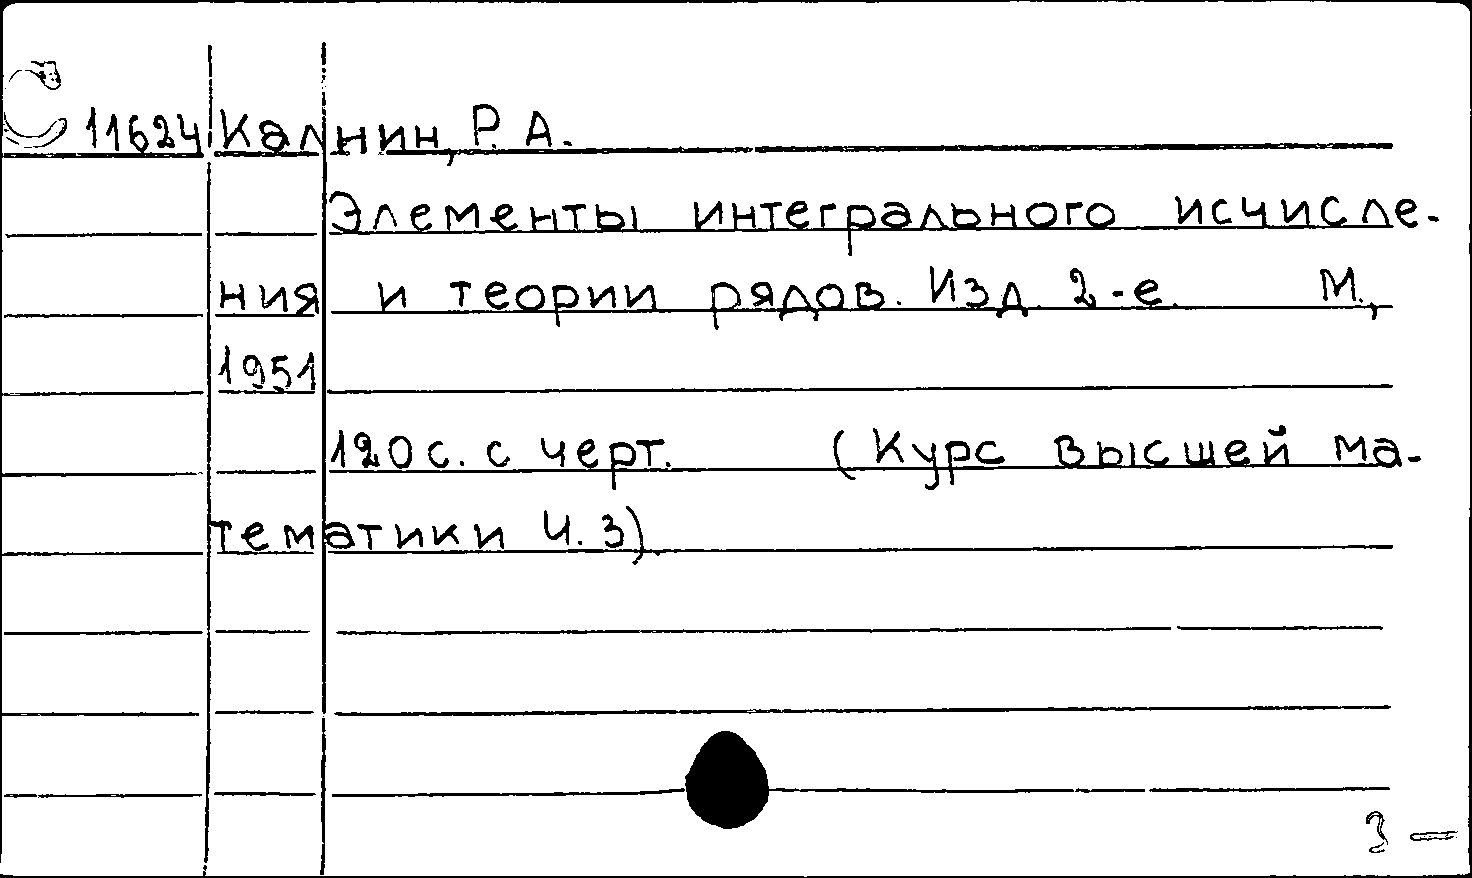 С 11624 Калнин, Р. А.
Элементы интегрального исчисле-
ния и теории рядов. Изд. 2-е. М.,
1951
120 с. с черт. (Курс высшей ма-
тематики Ч. 3)
3 —